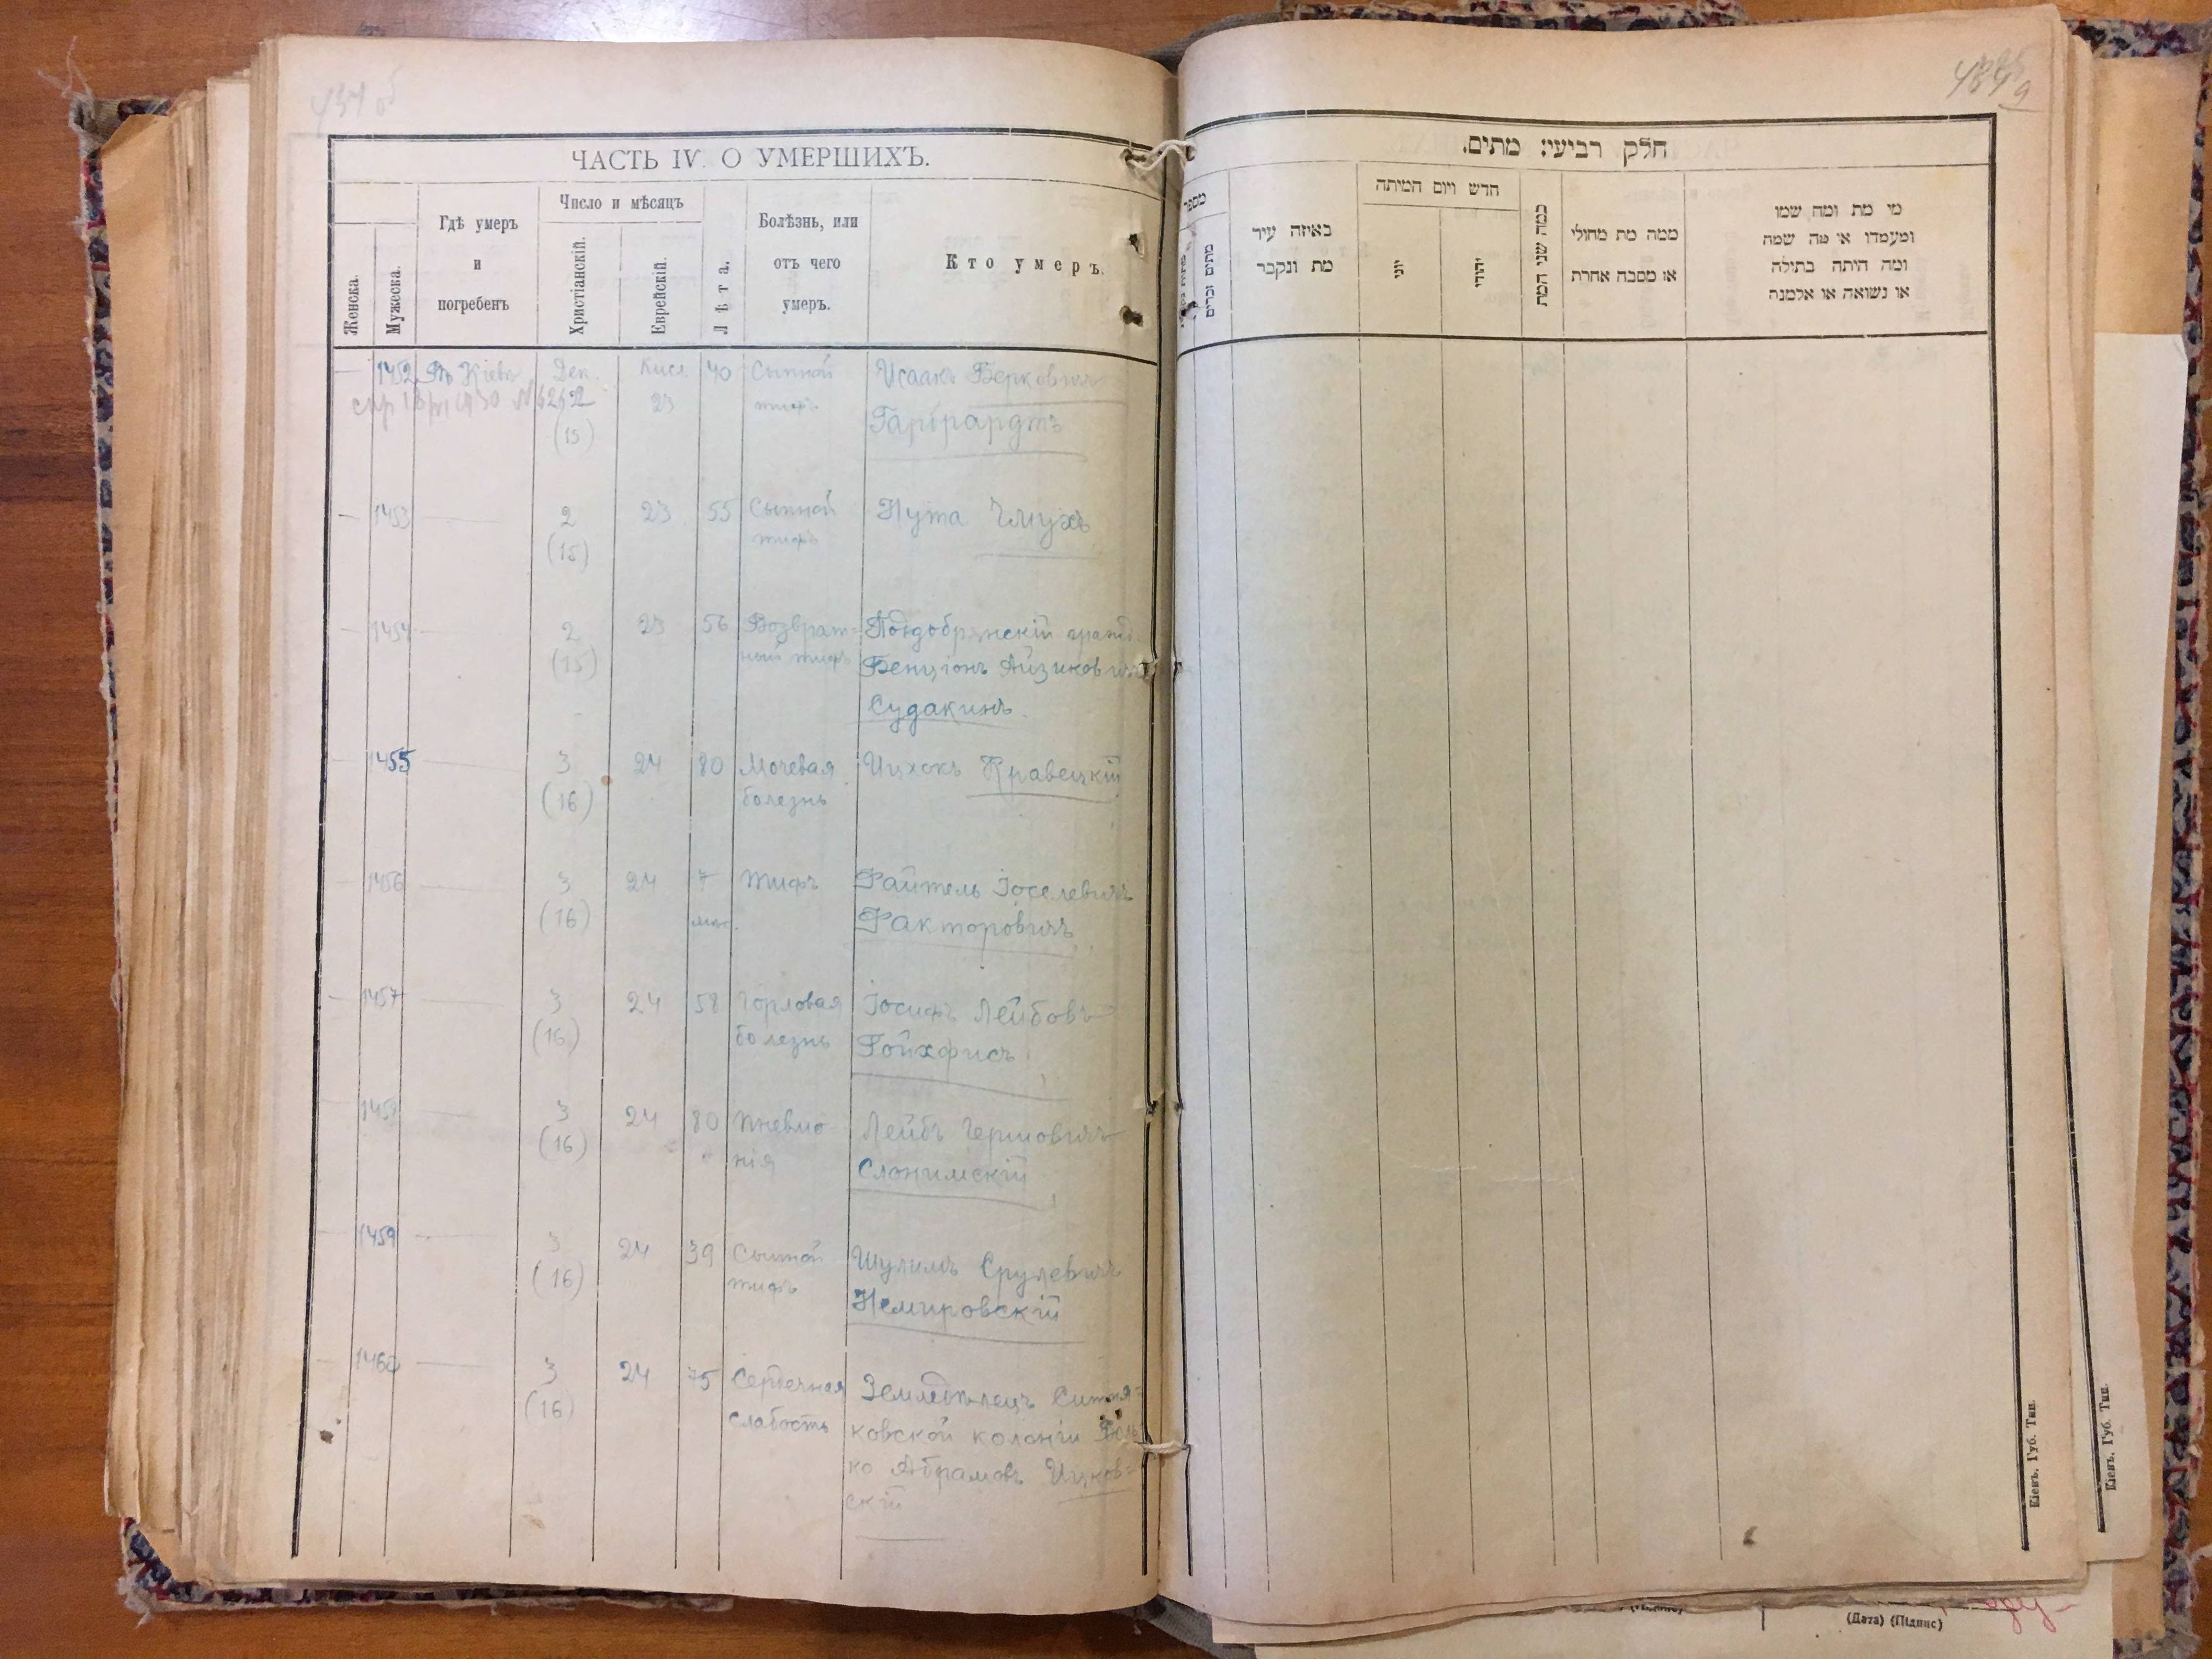 434 об
ЧАСТЬ IV. О УМЕРШИХЪ.
Женска.
Мужеска.
Гдѣ умеръ
и
погребенъ
Число и мѣсяцъ
Христіанскій.
Еврейскій.
Лѣта.
Болѣзнь, или
отъ чего
умеръ.
Кто умеръ.
— 1452 Въ Кіевѣ Дек. Кисл 40 Сыпной Исаакъ Берковичъ
2 23 тифъ
(15) Гарбрардтъ
— 1453 — 2 23 55 Сыпной Нута Чмухъ
(15) тифъ
— 1454 — 2 23 56 Возврат=
(15) ный тифъ Бенціонъ Айзиковичъ
Судакинъ
— 1455 — 3 24 80 Мочевая Ицхокъ Кравецкій
(16) болезнь
— 1456 — 3 24 7 Тифъ Файтель Іоселевичъ
(16) мѣс. Факторовичъ
— 1457 — 3 24 58 Горловая Іосифъ Лейбовъ
(16) болезнь Ройхфисъ
— 1458 — 3 24 80 Пневмо- Лейбъ Гершовичъ
(16) нія Слонимскій
— 1459 — 3 24 39 Сыпной Шулимъ Срулевичъ
(16) тифъ Немировскій
— 1460 — 3 24 75 Сердечная Земледѣлецъ Ситня=
(16) слабость ковской колоніи
ко Абрамовъ Ицков=
скій
חלק רביעי: מתים.
מספר
מתים זכרים
באיזה עיר
מת ונקבר
חדש ויום המיתה
יוני
יהודי
במה שני המת
ממה מת מחולי
או מסבה אחרת
מי מת ומה שמו
ומעמדו או מה שמה
ומה היתה בתולה
או נשואה או אלמנה
Кіевъ. Губ. Тип.
Кіевъ. Губ. Тип.
(Дата) (Підпис)